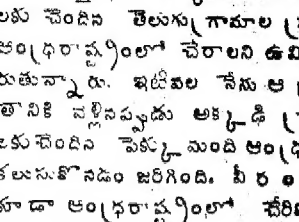 లకు చెందిన తెలుగు గ్రామాల
ఆంధ్రరాష్ట్రంలో చేరాలని ఉవి
రుతున్నారు. ఇటీవల నేను ఆ
తానికి వెళ్లినప్పుడు అక్కడి
ఒకు చెందిన పెక్కు మంది ఆంధ్ర
కలుసుకొనడం జరిగింది. వీరం
కూడా ఆంధ్రరాష్ట్రంలో చేరిక